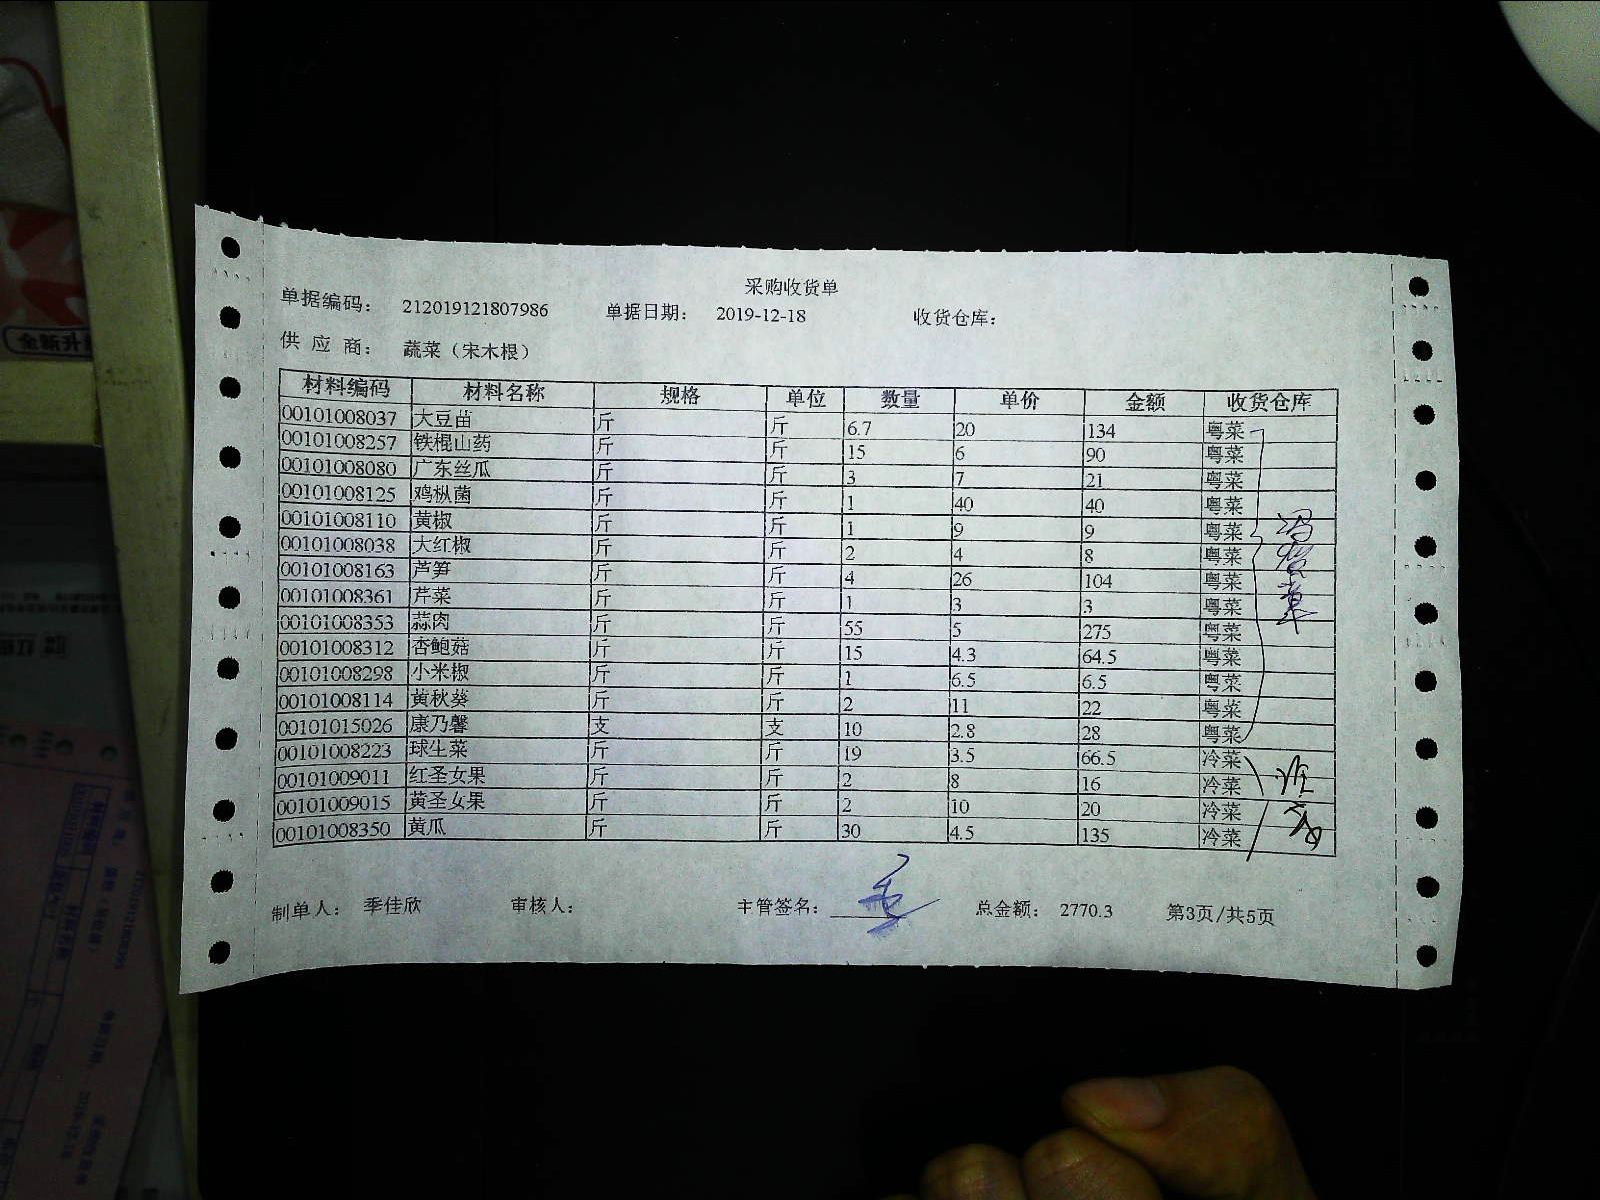 采购收货单
单据编码： 212019121807986 单据日期： 2019-12-18 收货仓库：
供 应 商： 蔬菜（宋木根）
材料编码 材料名称 规格 单位 数量 单价 金额 收货仓库
00101008037 大豆苗 斤 斤 6.7 20 134 粤菜
00101008257 铁棍山药 斤 斤 15 6 90 粤菜
00101008080 广东丝瓜 斤 斤 3 7 21 粤菜
00101008125 鸡枞菌 斤 斤 1 40 40 粤菜
00101008110 黄椒 斤 斤 1 9 9 粤菜
00101008038 大红椒 斤 斤 2 4 8 粤菜
00101008163 芦笋 斤 斤 4 26 104 粤菜
00101008361 芹菜 斤 斤 1 3 3 粤菜
00101008353 蒜肉 斤 斤 55 5 275 粤菜
00101008312 杏鲍菇 斤 斤 15 4.3 64.5 粤菜
00101008298 小米椒 斤 斤 1 6.5 6.5 粤菜
00101008114 黄秋葵 斤 斤 2 11 22 粤菜
00101015026 康乃馨 支 支 10 2.8 28 粤菜
00101008223 球生菜 斤 斤 19 3.5 66.5 冷菜
00101009011 红圣女果 斤 斤 2 8 16 冷菜
00101009015 黄圣女果 斤 斤 2 10 20 冷菜
00101008350 黄瓜 斤 斤 30 4.5 135 冷菜
制单人： 季佳欣 审核人： 主管签名： 总金额： 2770.3 第3页/共5页
全新升